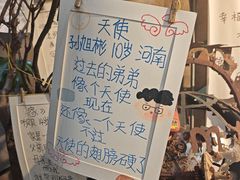 天使
孙旭彬 10岁 河南
过去的弟弟
像个天使
现在
还像一个天使
不过
天使的翅膀硬了